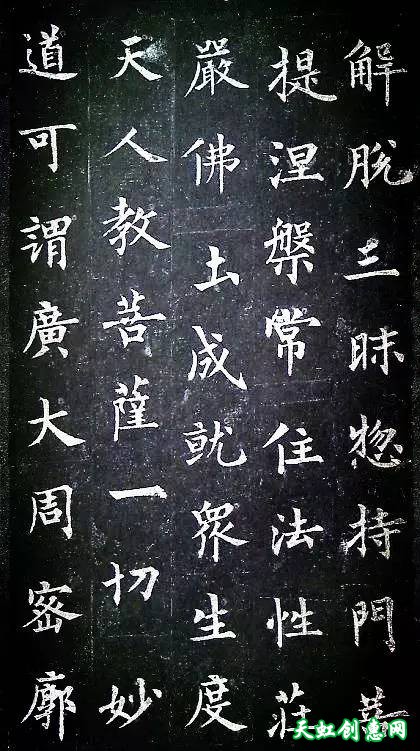 解脫三昧惣持門菩
提涅槃常住法性莊
嚴佛土成就眾生度
天人教菩薩一切妙
道可謂廣大周密廓
天虹创意网